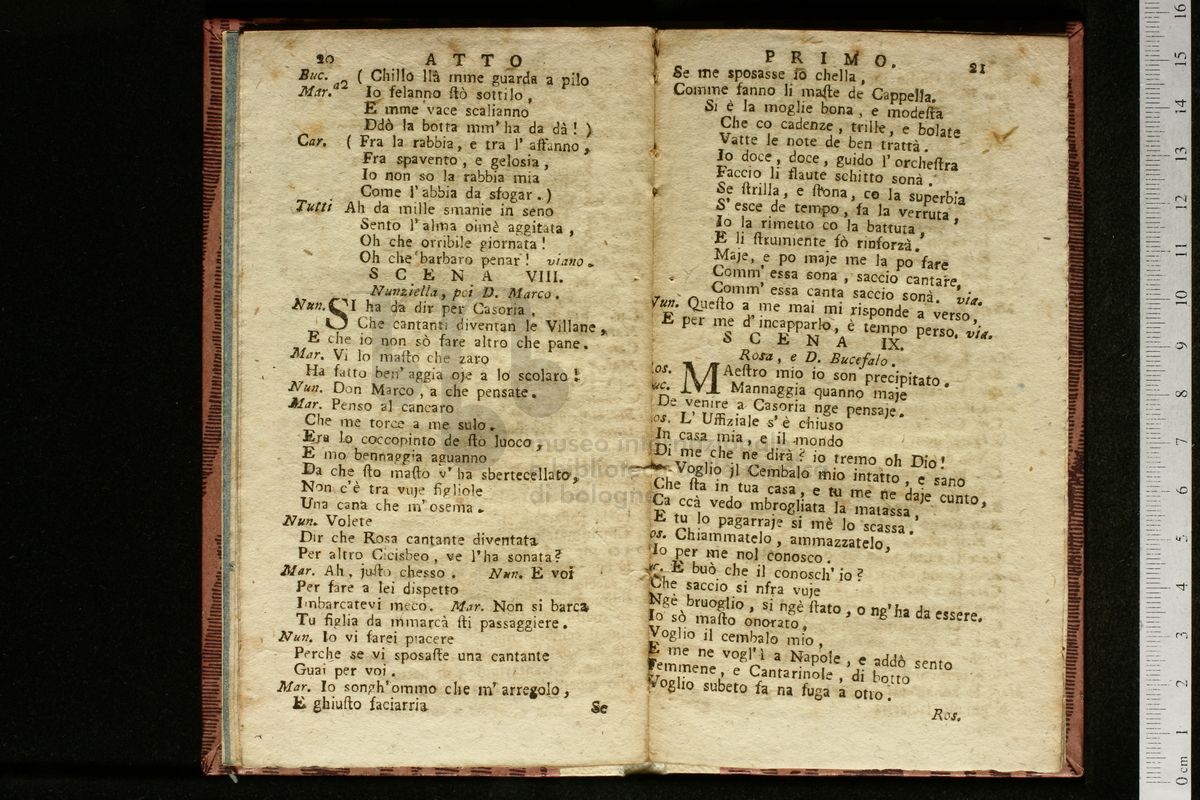 20 ATTO
Buc. ( Chillo llà mme guarda a pilo
Mar. a2 Io felanno ſtò sottilo,
E mme vace scalianno
Ddò la botta mm' ha da dà! )
Car. ( Fra la rabbia, e tra l' affanno,
Fra spavento, e gelosia,
Io non so la rabbia mia
Come l' abbia da sfogar. )
Tutti Ah da mille smanie in seno
Sento l' alma oimè aggitata,
Oh che orribile giornata!
Oh che barbaro penar! viano.
SCENA VIII.
Nunziella, poi D. Marco.
Nun. SI ha da dir per Casoria,
Che cantanti diventan le Villane,
E che io non sò fare altro che pane.
Mar. Vi lo maſto che zaro
Ha fatto ben' aggia oje a lo scolaro!
Nun. Don Marco, a che pensate.
Mar. Penso al cancaro
Che me torce a me sulo.
Era lo coccopinto de ſto luoco,
E mo bennaggia aguanno
Da che ſto maſto v' ha sbertecellato,
Non c'è tra vuje figliole
Una cana che m' osema.
Nun. Volete
Dir che Rosa cantante diventata
Per altro Cicisbeo, ve l'ha sonata?
Mar. Ah, juſto chesso. Nun. E voi
Per fare a lei dispetto
Imbarcatevi meco. Mar. Non si barca
Tu figlia da mmarcà ſti passaggiere.
Nun. Io vi farei piacere
Perche se vi sposaſte una cantante
Guai per voi.
Mar. Io songh'ommo che m' arregolo,
E ghiuſto faciarria
Se
PRIMO. 21
Se me sposasse io chella,
Comme fanno li maſte de Cappella.
Si è la moglie bona, e modeſta
Che co cadenze, trille, e bolate
Vatte le note de ben trattà.
Io doce, doce, guido l' orcheſtra
Faccio li flaute schitto sonà.
Se ſtrilla, e ſtona, co la superbia
S' esce de tempo, fa la verruta,
Io la rimetto co la battuta,
E li ſtrumiente fò rinforzà.
Maje, e po maje me la po fare
Comm' essa sona, saccio cantare,
Comm' essa canta saccio sonà. via.
Nun. Queſto a me mai mi risponde a verso,
E per me d' incapparlo, è tempo perso. via.
SCENA IX.
Rosa, e D. Bucefalo.
os. MAeſtro mio io son precipitato.
uc. Mannaggia quanno maje
De venire a Casoria nge pensaje.
os. L' Uffiziale s' è chiuso
In casa mia, e il mondo
Di me che ne dirà? io tremo oh Dio!
Voglio il Cembalo mio intatto, e sano
Che ſta in tua casa, e tu me ne daje cunto,
Ca ccà vedo mbrogliata la matassa,
E tu lo pagarraje si mè lo scassa.
os. Chiammatelo, ammazzatelo,
Io per me nol conosco.
c. E buò che il conosch' io?
Che saccio si nfra vuje
Ngè bruoglio, si ngè ſtato, o ng' ha da essere.
Io sò maſto onorato,
Voglio il cembalo mio,
E me ne vogl' ì a Napole, e addò sento
Femmene, e Cantarinole, di botto
Voglio subeto fa na fuga a otto.
Ros.
museo
di bologna
0 cm 1 2 3 4 5 6 7 8 9 10 11 12 13 14 15 16